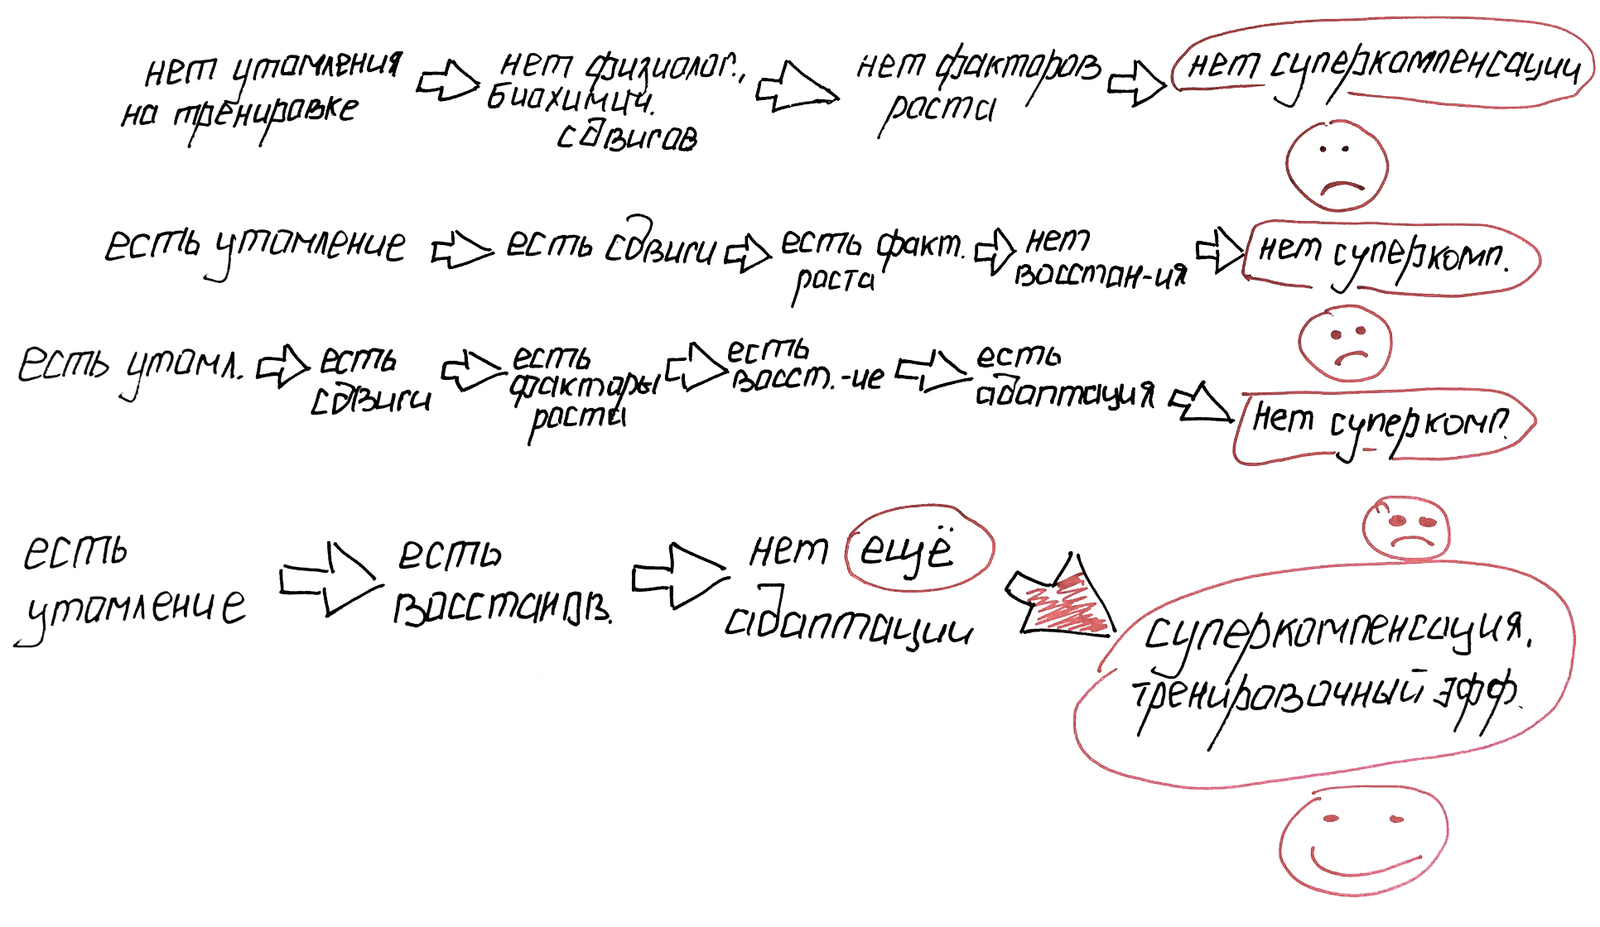 нет утомления
на тренировке
нет физиолог.,
биохимич.
сдвигов
нет факторов
роста
нет суперкомпенсации
есть утомление
есть сдвиги
есть факт.
роста
нет
восстан-ия
нет суперкомп.
есть утомл.
есть
сдвиги
есть
факторы
роста
есть
восст.-ие
есть
адаптация
нет суперкомп.
есть
утомление
есть
восстанов.
нет ещё
адаптации
суперкомпенсация.
тренировочный эфф.